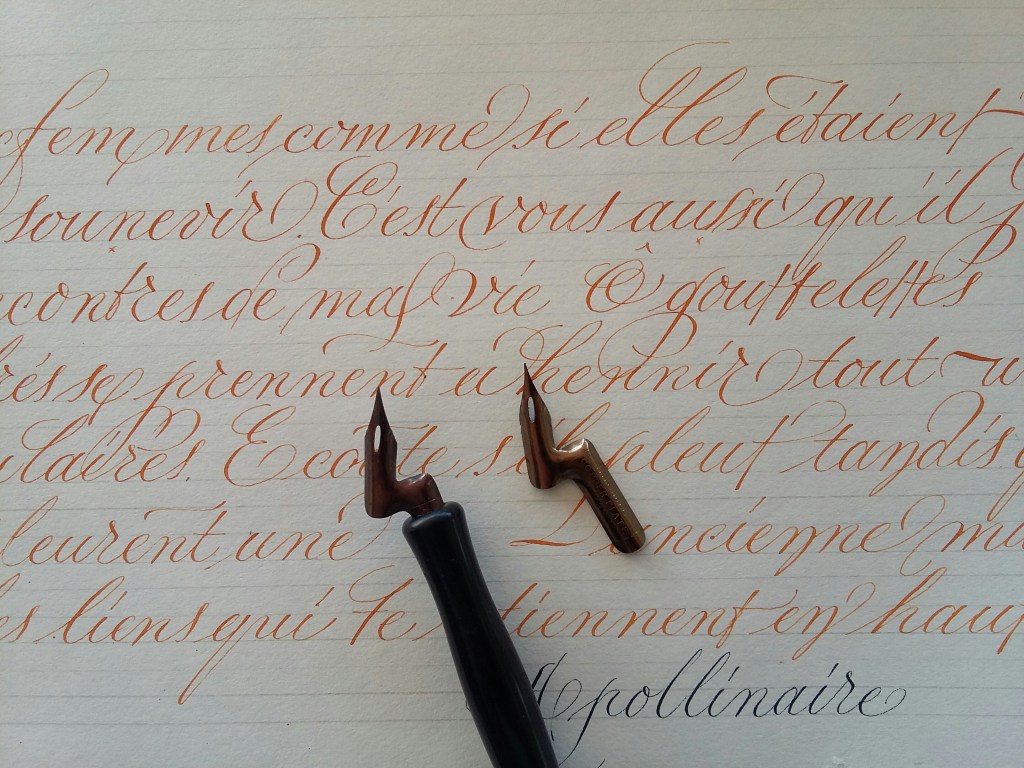 femmes comme si elles étaient
sounevir. C'est vous aussi qu'il p
contres de ma vie Ô gouttelettes
rés se prennent a hennir tout u
laires. Ecoute s'il pleut tandis q
leurent une L'ancienne mu
es liens qui te tiennent en haut
Apollinaire